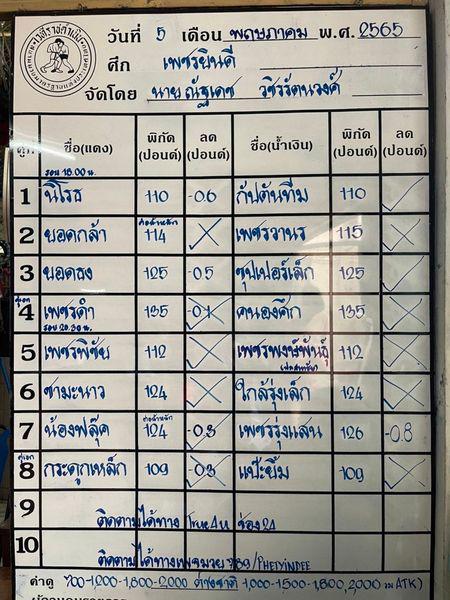 วันที่ 5 เดือน พฤษภาคม พ.ศ. 2565
ศึก เพชรยินดี
จัดโดย นาย ณัฐเดช วชิรรัตนวงศ์
คู่ที่ ชื่อ(แดง) พิกัด (ปอนด์) ลด (ปอนด์) ชื่อ(น้ำเงิน) พิกัด (ปอนด์) ลด (ปอนด์)
รอบ 18.00 น.
1 นิโรธ 110 -0.6 กัปตันทีม 110
2 ยอดกล้า 114 เพชรวานร 115
3 ยอดธง 125 -0.5 ซุปเปอร์เล็ก 125
คู่เอก
4 เพชรดำ 135 -0.1 คนองศึก 135
รอบ 20.30 น.
5 เพชรพิชัย 112 เพชรพงษ์พันธุ์ 112
6 ชามะนาว 124 ใกล้รุ่งเล็ก 124
7 น้องฟลุ๊ค 124 -0.3 เพชรรุ่งแสน 126 -0.8
คู่เอก
8 กระดูกเหล็ก 109 -0.3 แป๊ะยิ้ม 109
9 ติดตามได้ทาง True4U ช่อง 24
10 ติดตามได้ทางเพชรมวย 789/PHETYINDEE
ค่าดู 700-1,200-1,600-2,000 ต่างชาติ 1,000-1,500-1,800, 2,000 ATK)